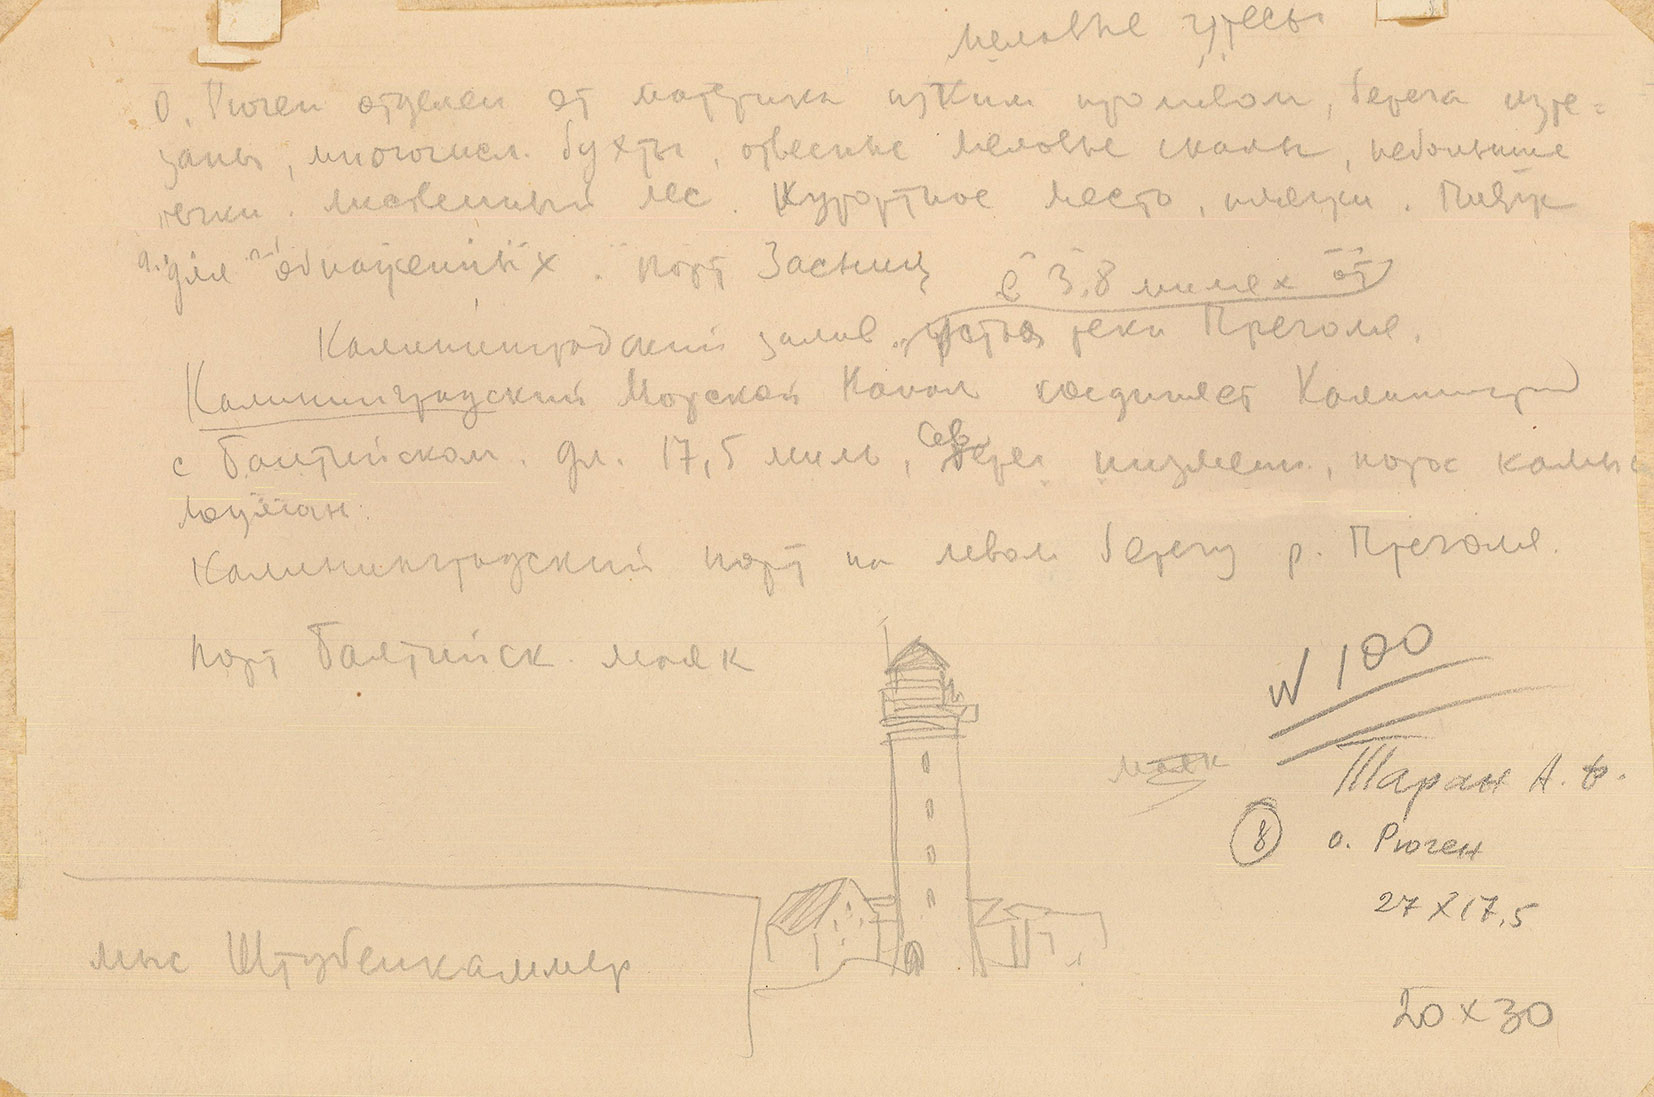 меловые утесы
О. Рюген отделен от материка узким проливом, берега изре-
заны, многочисл. бухты, отвесные меловые скалы, небольшие
речки. лиственный лес. Курортное место, пляжи. Пляж
для "обнаженных". порт Засниц
в 3,8 милях от
Калининградский залив устья реки Преголя.
Калининградский Морской Канал соединяет Калининград
с Балтийском. дл. 17,5 миль, сев берег низмен., порос камы
Калининградский порт на левом берегу р. Преголя.
порт Балтийск. маяк
N 100
маяк
Таран А. Ф.
8 о. Рюген
27 X 17,5
мыс Штубенкаммер
20 x 30